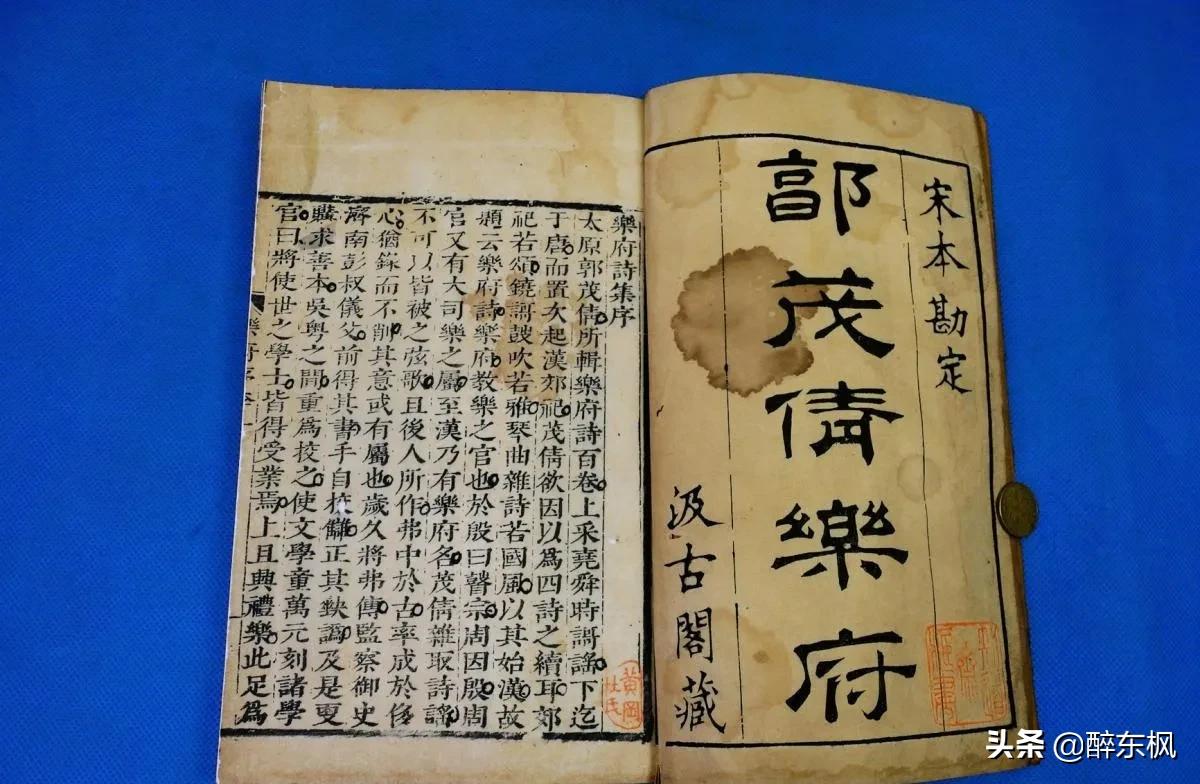 宋本勘定
郭茂倩樂府
汲古閣藏
樂府詩集序
太原郭茂倩所輯樂府詩百卷上采堯舜時謌謠下迄
于唐而置次起漢郊祀茂倩欲因以爲四詩之續耳郊
祀若頌鐃謌鼓吹若雅琴曲雜詩若國風以其始漢故
題云樂府詩樂府教樂之官也於殷曰瞽宗周因殷周
官又有大司樂之屬至漢乃有樂府名茂倩雜取詩謠
不可以皆被之弦歌且後人所作弗中於古率成於侈
心猶錄而不削其意或有屬也歲久將弗傳監察御史
濟南彭叔儀父前得其書手自校讎正其缺譌及是更
購求善本吳粤之間重爲校之使文學童萬元刻諸學
官曰將使世之學士皆得受業焉上且興禮樂此足爲
黃岡
杜氏
头条 @醉东枫